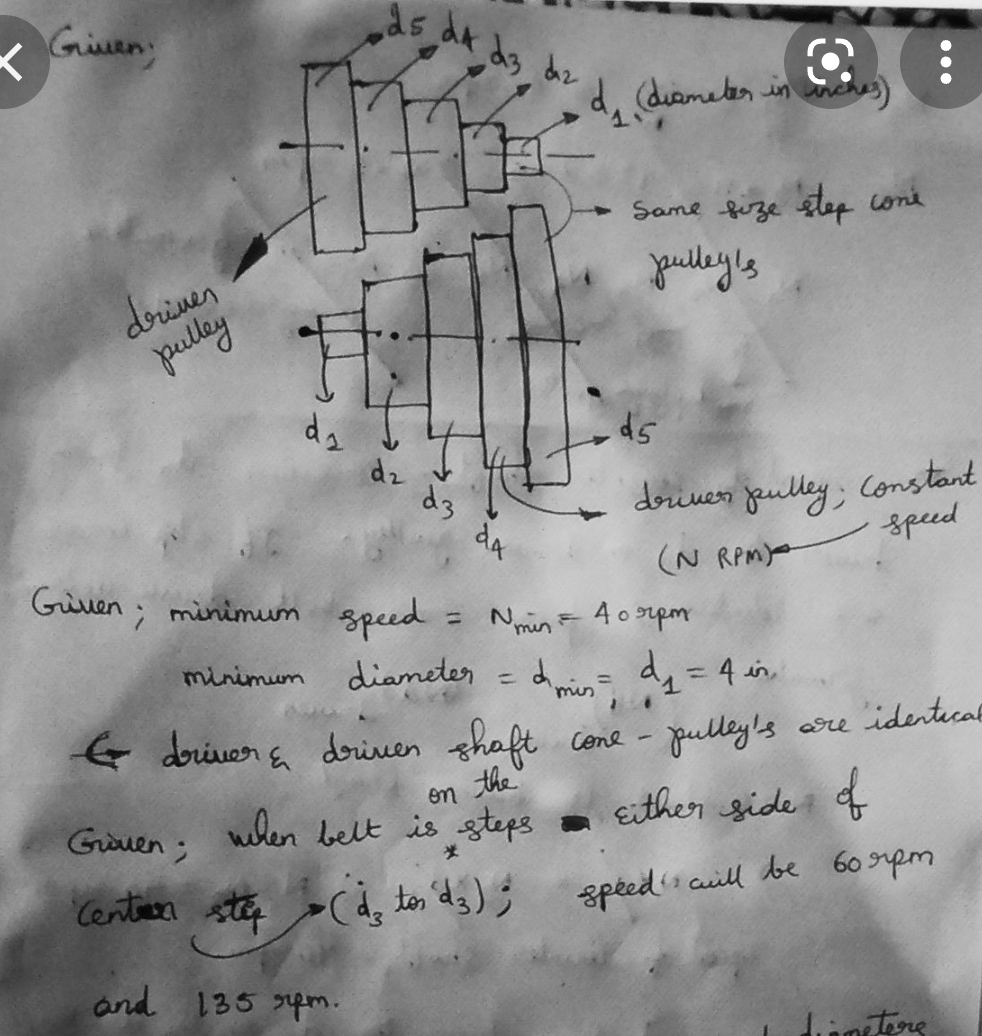 Given;
d5
d4
d3
d2
d1 (diameter in inches)
same size step cone
pulley's
driven
pulley
d1
d2
d3
d4
d5
driver pulley; constant
speed
(N RPM)
Given; minimum speed = Nmin = 40 rpm
minimum diameter = dmin = d1 = 4 in.
driver & driven shaft cone - pulley's are identical
on the
Given; when belt is steps either side of
*
center step (d3 to d3); speed will be 60 rpm
and 135 rpm.